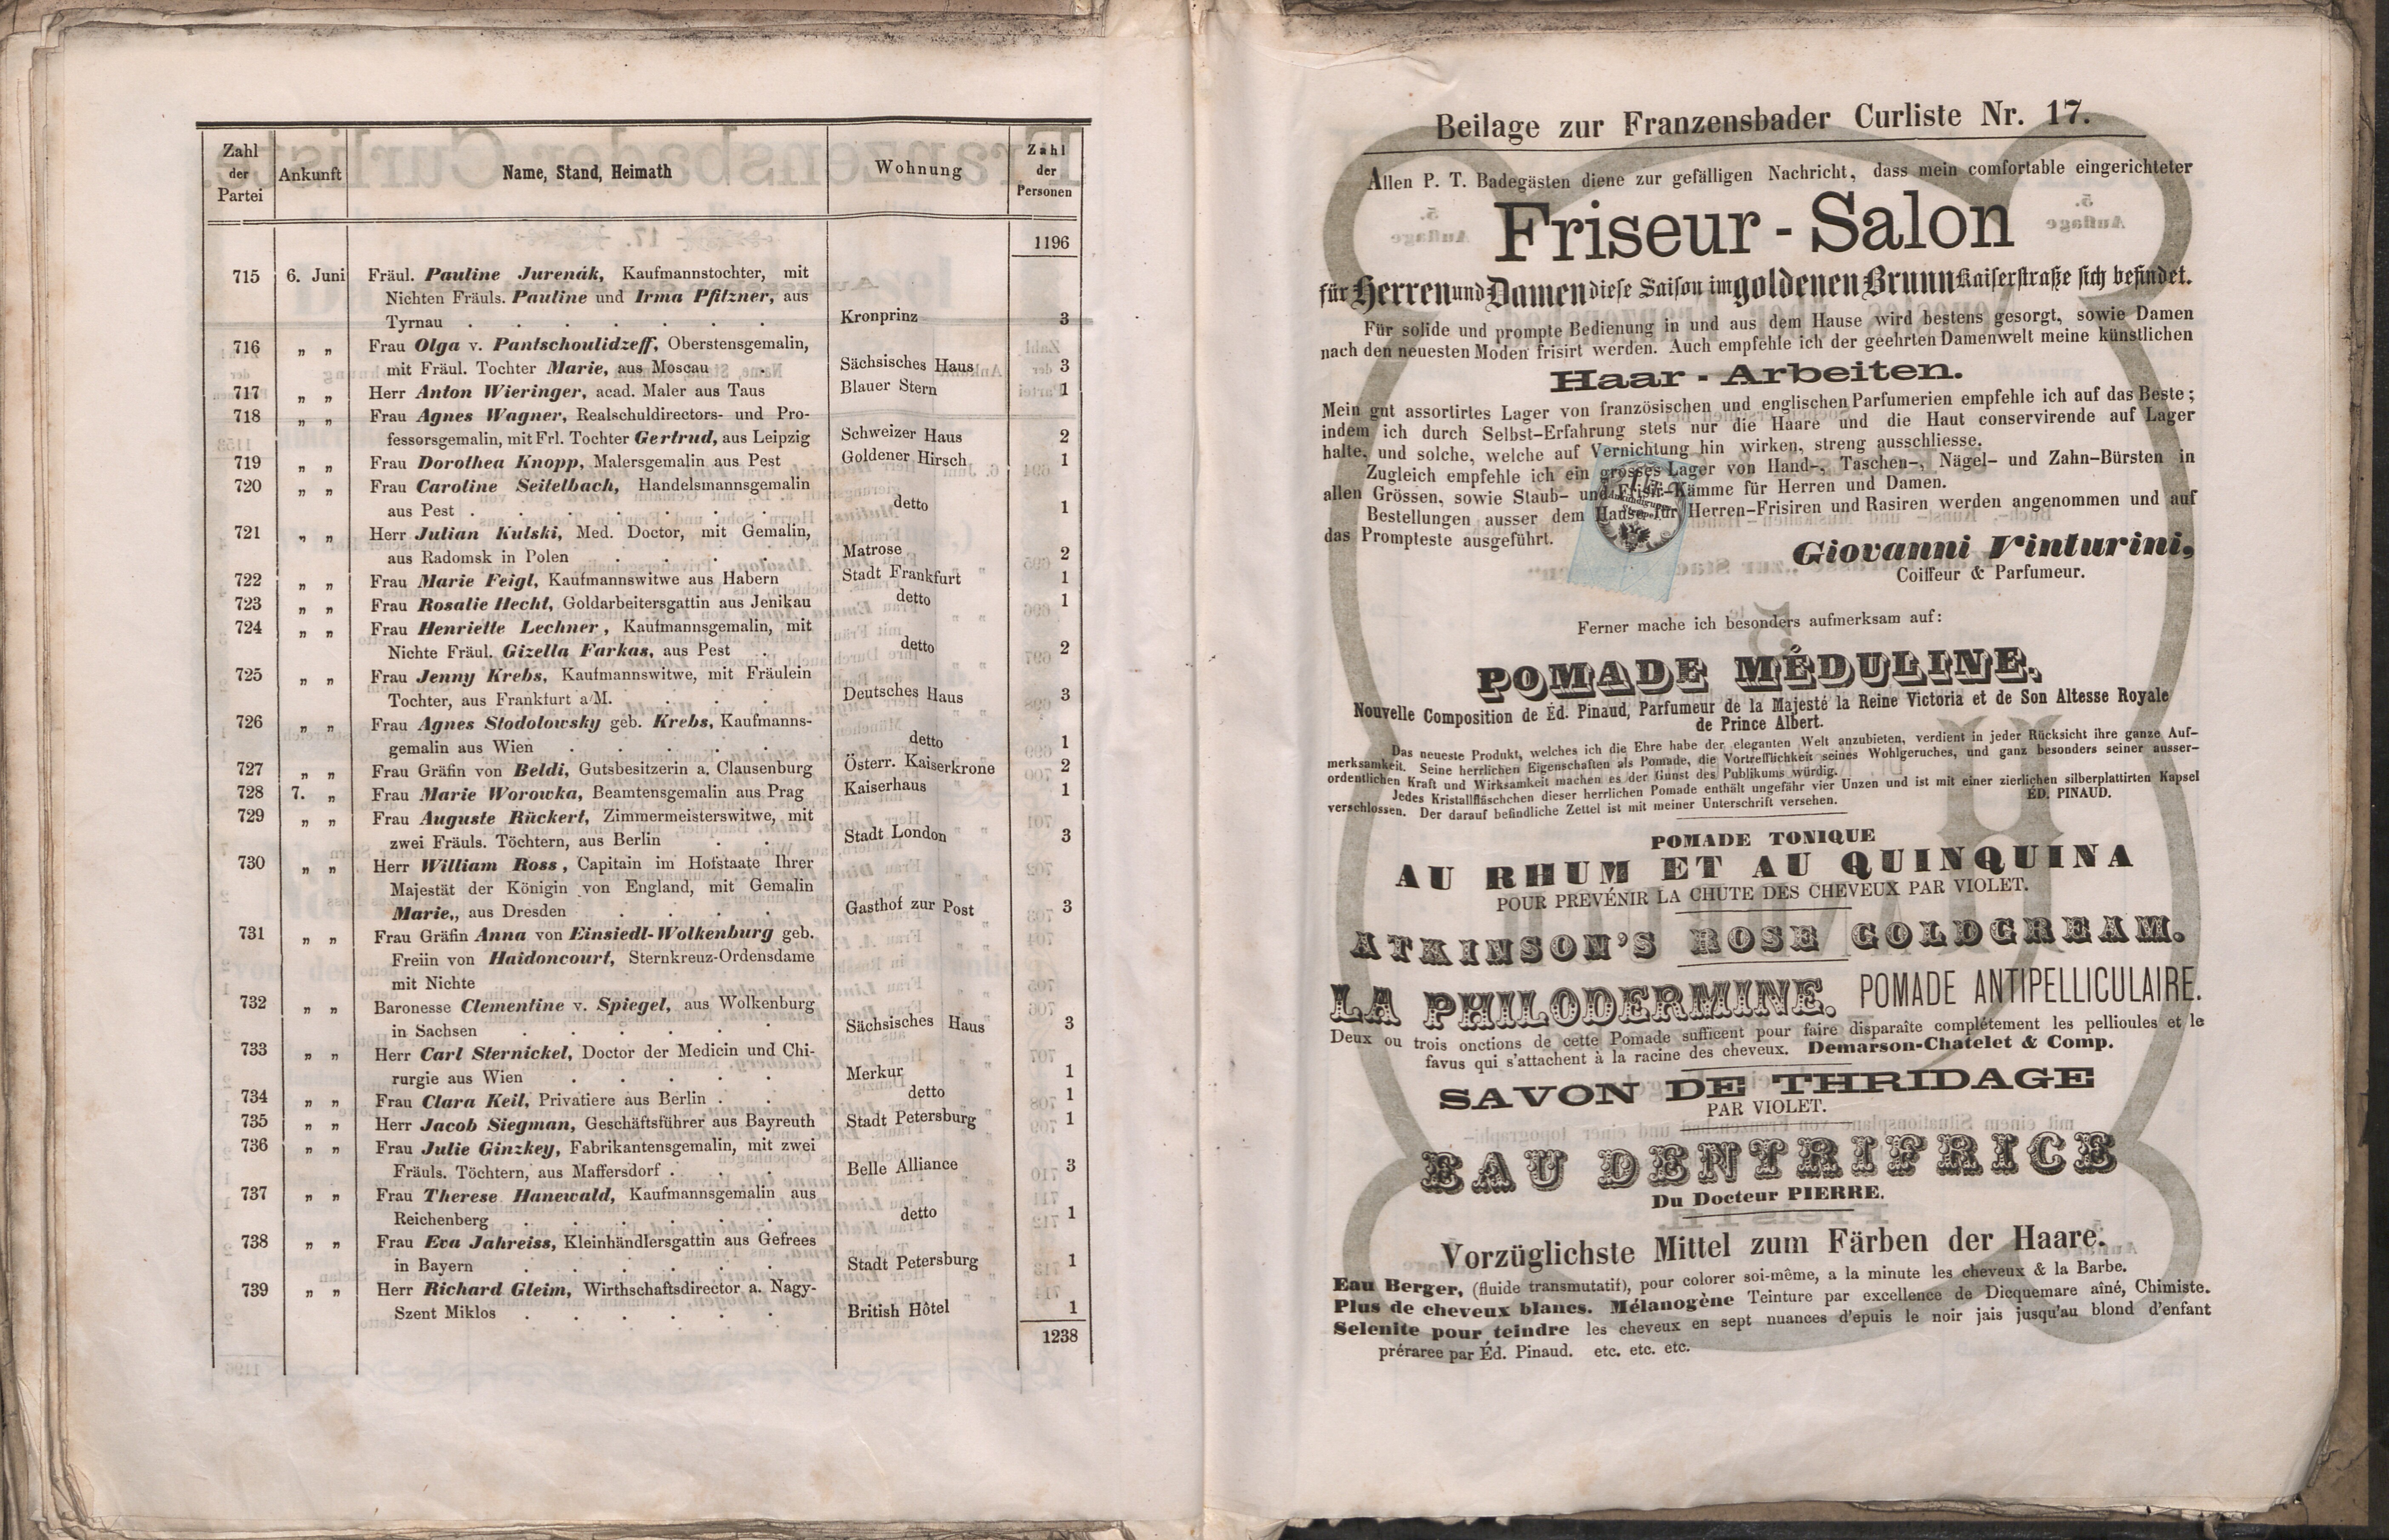 Zahl der Partei Ankunft Name, Stand, Heimath Wohnung Zahl der Personen
1196
715 6. Juni Fräul. Pauline Jurenák, Kaufmannstochter, mit
Nichten Fräuls. Pauline und Irma Pfitzner, aus
Tyrnau . . . . . . . Kronprinz 3
716 „ „ Frau Olga v. Pantschoulidzeff, Oberstensgemalin,
mit Fräul. Tochter Marie, aus Moscau . Sächsisches Haus 3
717 „ „ Herr Anton Wieringer, acad. Maler aus Taus Blauer Stern 1
718 „ „ Frau Agnes Wagner, Realschuldirectors- und Pro-
fessorsgemalin, mit Frl. Tochter Gertrud, aus Leipzig Schweizer Haus 2
719 „ „ Frau Dorothea Knopp, Malersgemalin aus Pest Goldener Hirsch 1
720 „ „ Frau Caroline Seitelbach, Handelsmannsgemalin
aus Pest . . . . . . . detto 1
721 „ „ Herr Julian Kulski, Med. Doctor, mit Gemalin,
aus Radomsk in Polen . . . . Matrose 2
722 „ „ Frau Marie Feigl, Kaufmannswitwe aus Habern Stadt Frankfurt 1
723 „ „ Frau Rosalie Hecht, Goldarbeitersgattin aus Jenikau detto 1
724 „ „ Frau Henriette Lechner, Kaufmannsgemalin, mit
Nichte Fräul. Gizella Farkas, aus Pest . detto 2
725 „ „ Frau Jenny Krebs, Kaufmannswitwe, mit Fräulein
Tochter, aus Frankfurt a/M. . . . Deutsches Haus 3
726 „ „ Frau Agnes Stodolowsky geb. Krebs, Kaufmanns-
gemalin aus Wien . . . . . detto 1
727 „ „ Frau Gräfin von Beldi, Gutsbesitzerin a. Clausenburg Österr. Kaiserkrone 2
728 7. „ Frau Marie Worowka, Beamtensgemalin aus Prag Kaiserhaus 1
729 „ „ Frau Auguste Rückert, Zimmermeisterswitwe, mit
zwei Fräuls. Töchtern, aus Berlin . . Stadt London 3
730 „ „ Herr William Ross, Capitain im Hofstaate Ihrer
Majestät der Königin von England, mit Gemalin
Marie,, aus Dresden . . . . Gasthof zur Post 3
731 „ „ Frau Gräfin Anna von Einsiedl-Wolkenburg geb.
Freiin von Haidoncourt, Sternkreuz-Ordensdame
mit Nichte
732 „ „ Baronesse Clementine v. Spiegel, aus Wolkenburg
in Sachsen . . . . . . Sächsisches Haus 3
733 „ „ Herr Carl Sternickel, Doctor der Medicin und Chi-
rurgie aus Wien . . . . . Merkur 1
734 „ „ Frau Clara Keil, Privatiere aus Berlin . . detto 1
735 „ „ Herr Jacob Siegman, Geschäftsführer aus Bayreuth Stadt Petersburg 1
736 „ „ Frau Julie Ginzkey, Fabrikantensgemalin, mit zwei
Fräuls. Töchtern, aus Maffersdorf . . . Belle Alliance 3
737 „ „ Frau Therese Hanewald, Kaufmannsgemalin aus
Reichenberg . . . . . . detto 1
738 „ „ Frau Eva Jahreiss, Kleinhändlersgattin aus Gefrees
in Bayern . . . . . . Stadt Petersburg 1
739 „ „ Herr Richard Gleim, Wirthschaftsdirector a. Nagy-
Szent Miklos . . . . . . British Hôtel 1
1238
Beilage zur Franzensbader Curliste Nr. 17.
Allen P. T. Badegästen diene zur gefälligen Nachricht, dass mein comfortable eingerichteter
Friseur - Salon
für Herren und Damen diese Saison im goldenen Brunn Kaiserstraße sich befindet.
Für solide und prompte Bedienung in und aus dem Hause wird bestens gesorgt, sowie Damen
nach den neuesten Moden frisirt werden. Auch empfehle ich der geehrten Damenwelt meine künstlichen
Haar - Arbeiten.
Mein gut assortirtes Lager von französischen und englischen Parfumerien empfehle ich auf das Beste;
indem ich durch Selbst-Erfahrung stets nur die Haare und die Haut conservirende auf Lager
halte, und solche, welche auf Vernichtung hin wirken, streng ausschliesse.
Zugleich empfehle ich ein grosses Lager von Hand-, Taschen-, Nägel- und Zahn-Bürsten in
allen Grössen, sowie Staub- und Frisir-Kämme für Herren und Damen.
Bestellungen ausser dem Hause für Herren-Frisiren und Rasiren werden angenommen und auf
das Prompteste ausgeführt.
Giovanni Vinturini,
Coiffeur & Parfumeur.
Ferner mache ich besonders aufmerksam auf:
POMADE MÉDULINE.
Nouvelle Composition de Éd. Pinaud, Parfumeur de la Majesté la Reine Victoria et de Son Altesse Royale
de Prince Albert.
Das neueste Produkt, welches ich die Ehre habe der eleganten Welt anzubieten, verdient in jeder Rücksicht ihre ganze Auf-
merksamkeit. Seine herrlichen Eigenschaften als Pomade, die Vortrefflichkeit seines Wohlgeruches, und ganz besonders seiner ausser-
ordentlichen Kraft und Wirksamkeit machen es der Gunst des Publikums würdig.
Jedes Kristallfläschchen dieser herrlichen Pomade enthält ungefähr vier Unzen und ist mit einer zierlichen silberplattirten Kapsel
verschlossen. Der darauf befindliche Zettel ist mit meiner Unterschrift versehen. ÉD. PINAUD.
POMADE TONIQUE
AU RHUM ET AU QUINQUINA
POUR PREVÉNIR LA CHUTE DES CHEVEUX PAR VIOLET.
ATKINSON'S ROSE GOLDCREAM.
LA PHILODERMINE. POMADE ANTIPELLICULAIRE.
Deux ou trois onctions de cette Pomade sufficent pour faire disparaîte complétement les pellioules et le
favus qui s'attachent à la racine des cheveux. Demarson-Chatelet & Comp.
SAVON DE THRIDAGE
PAR VIOLET.
EAU DENTRIFRICE
Du Docteur PIERRE.
Vorzüglichste Mittel zum Färben der Haare.
Eau Berger, (fluide transmutatif), pour colorer soi-même, a la minute les cheveux & la Barbe.
Plus de cheveux blancs. Mélanogène Teinture par excellence de Dicquemare aîné, Chimiste.
Selenite pour teindre les cheveux en sept nuances d'epuis le noir jais jusqu'au blond d'enfant
préraree par Éd. Pinaud. etc. etc. etc.